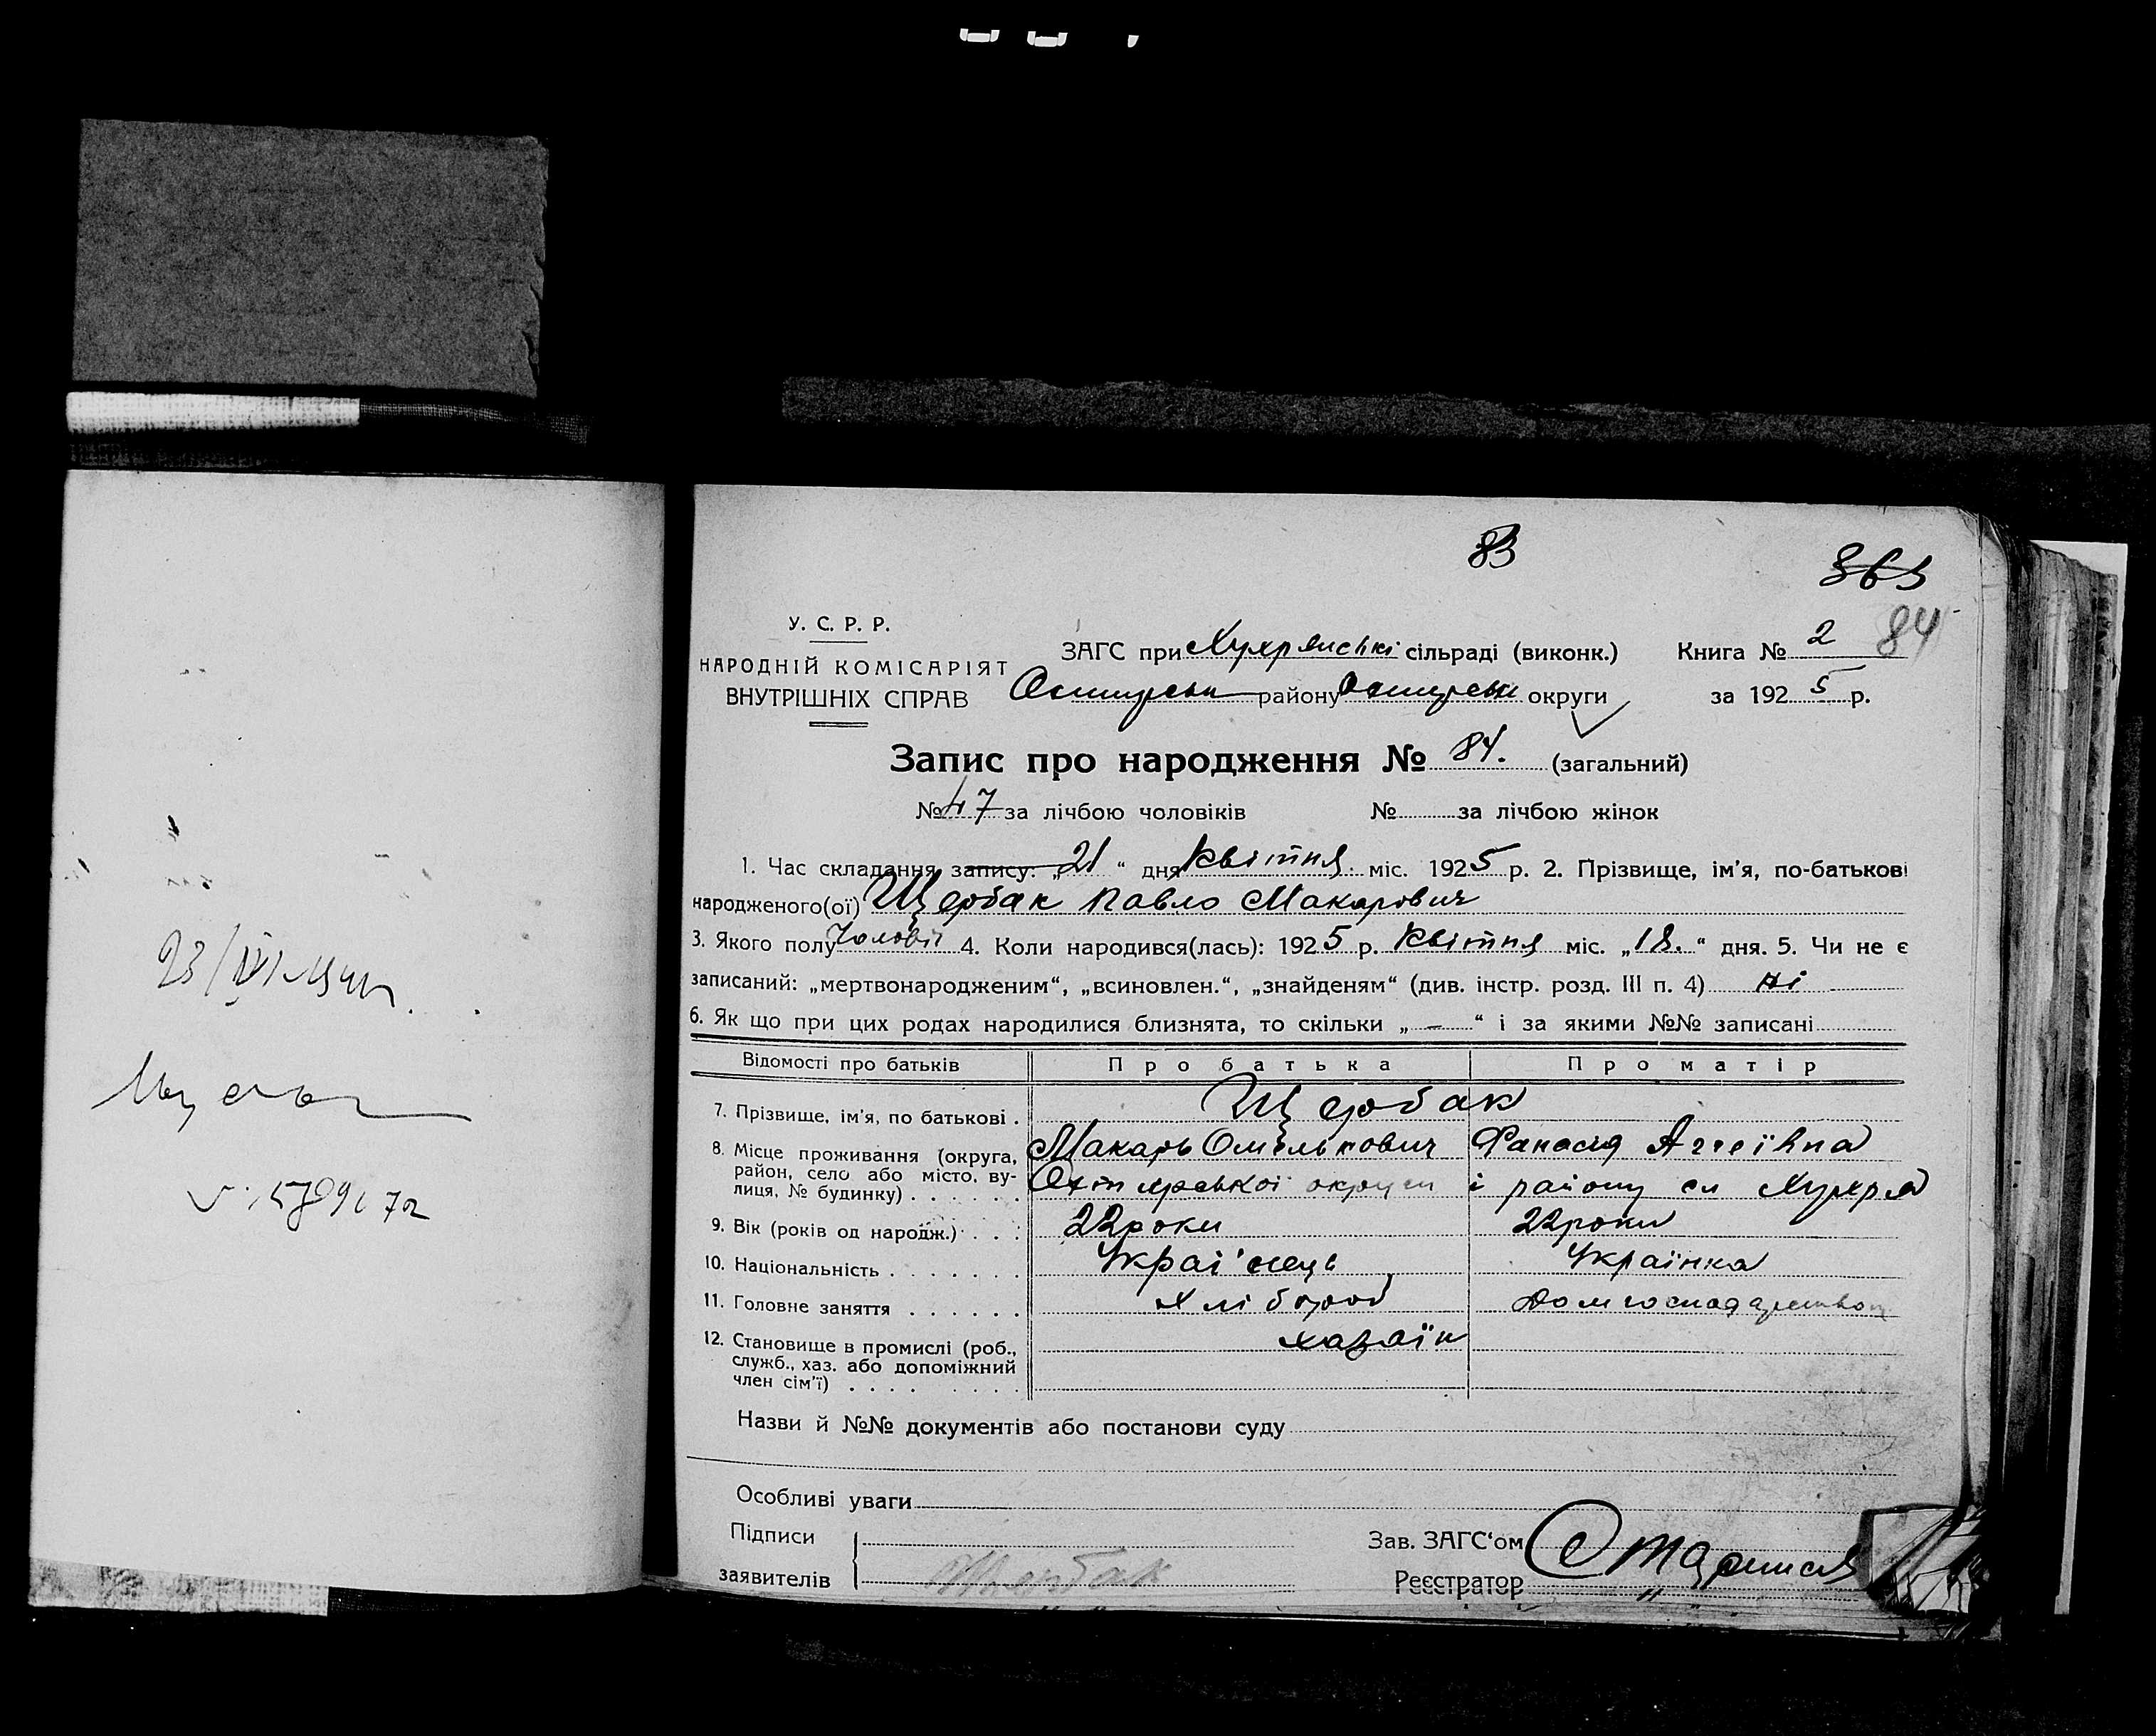 83
863
84
У. С. Р. Р.
НАРОДНІЙ КОМІСАРІЯТ
ВНУТРІШНІХ СПРАВ
ЗАГС при Хухрянські сільраді (виконк.) Книга № 2
Охтирськ району Охтирськ округи за 1925 р.
Запис про народження № 84. (загальний)
№ 47 за лічбою чоловіків № за лічбою жінок
1. Час складання запису: „21“ дня квітня міс. 1925 р. 2. Прізвище, ім'я, по-батькові
народженого(ої) Щербак Павло Макарович
3. Якого полу чоловіч 4. Коли народився(лась): 1925 р. квітня міс. „18.“ дня. 5. Чи не є
записаний: „мертвонародженим“, „всиновлен.“, „знайденям“ (див. інстр. розд. III п. 4) ні
6. Як що при цих родах народилися близнята, то скільки „ — “ і за якими №№ записані
Відомості про батьків Про батька Про матір
7. Прізвище, ім'я, по батькові . Щербак
Макарь Омелькович
8. Місце проживання (округа, район, село або місто, вулиця, № будинку) . . . . . . Охтирської округи і району сл Хухря
9. Вік (років од народж.) . . . 22 роки 22 роки
10. Національність . . . . . . . Украі'нець Українка
11. Головне заняття . . . . . . Хлібороб
12. Становище в промислі (роб., служб., хаз. або допоміжний член сім'ї) . . . . . . . . хазяїн
Назви й №№ документів або постанови суду
Особливі уваги
Підписи
заявителів Щербак
Зав. ЗАГС'ом
Реєстратор "